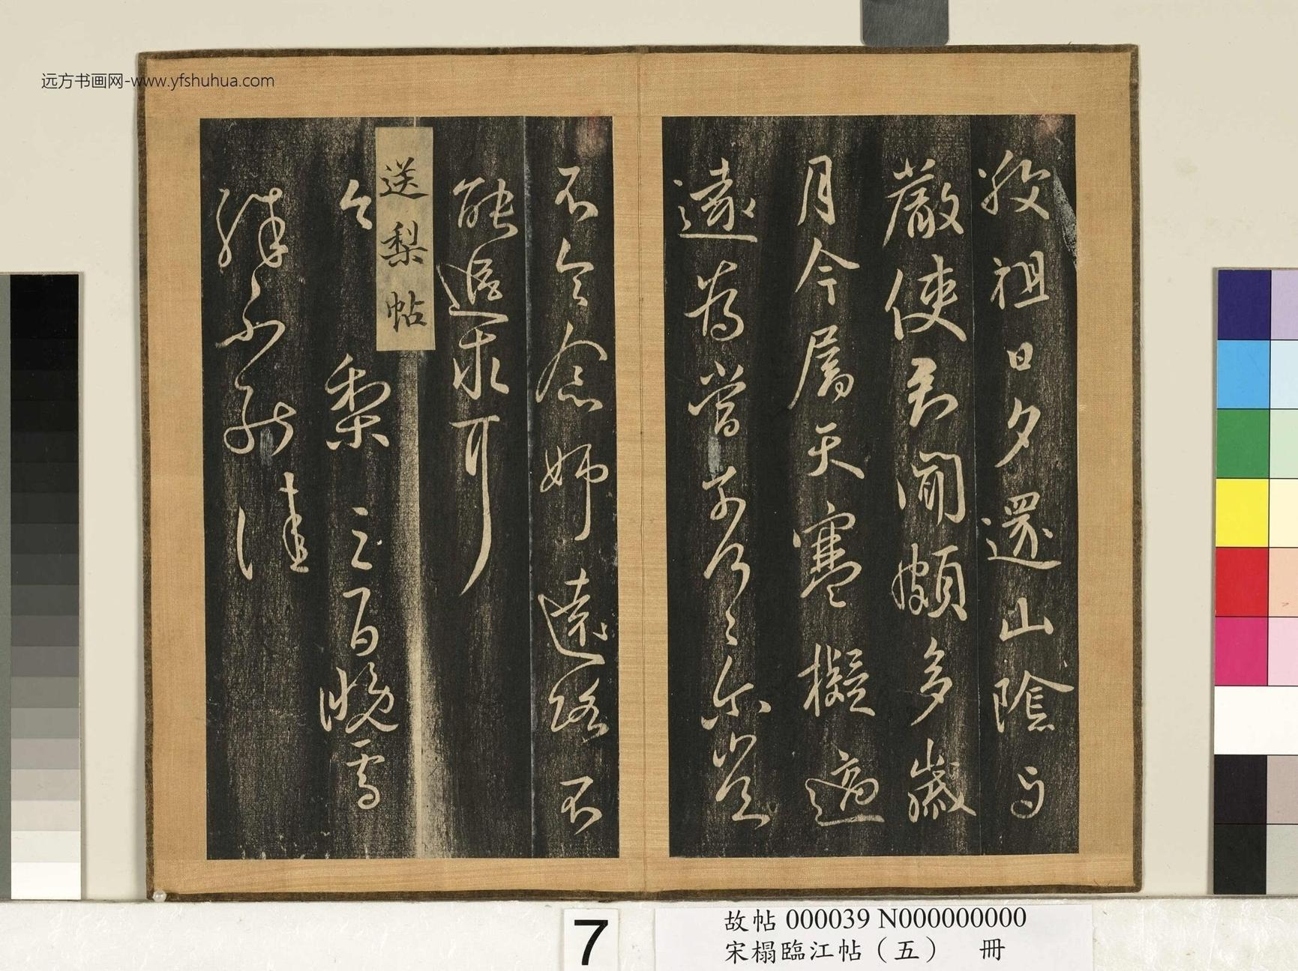 远方书画网-www.yfshuhua.com
殺祖日夕還山陰與
嚴使君聞頗多歲
月今屬天寒擬適
遠為當奈何奈何爾豈
不令念姊遠路不
能追求耳
今
送梨帖
梨三百晚雪
殊不能佳
7
故帖 000039 N000000000
宋榻臨江帖（五） 冊